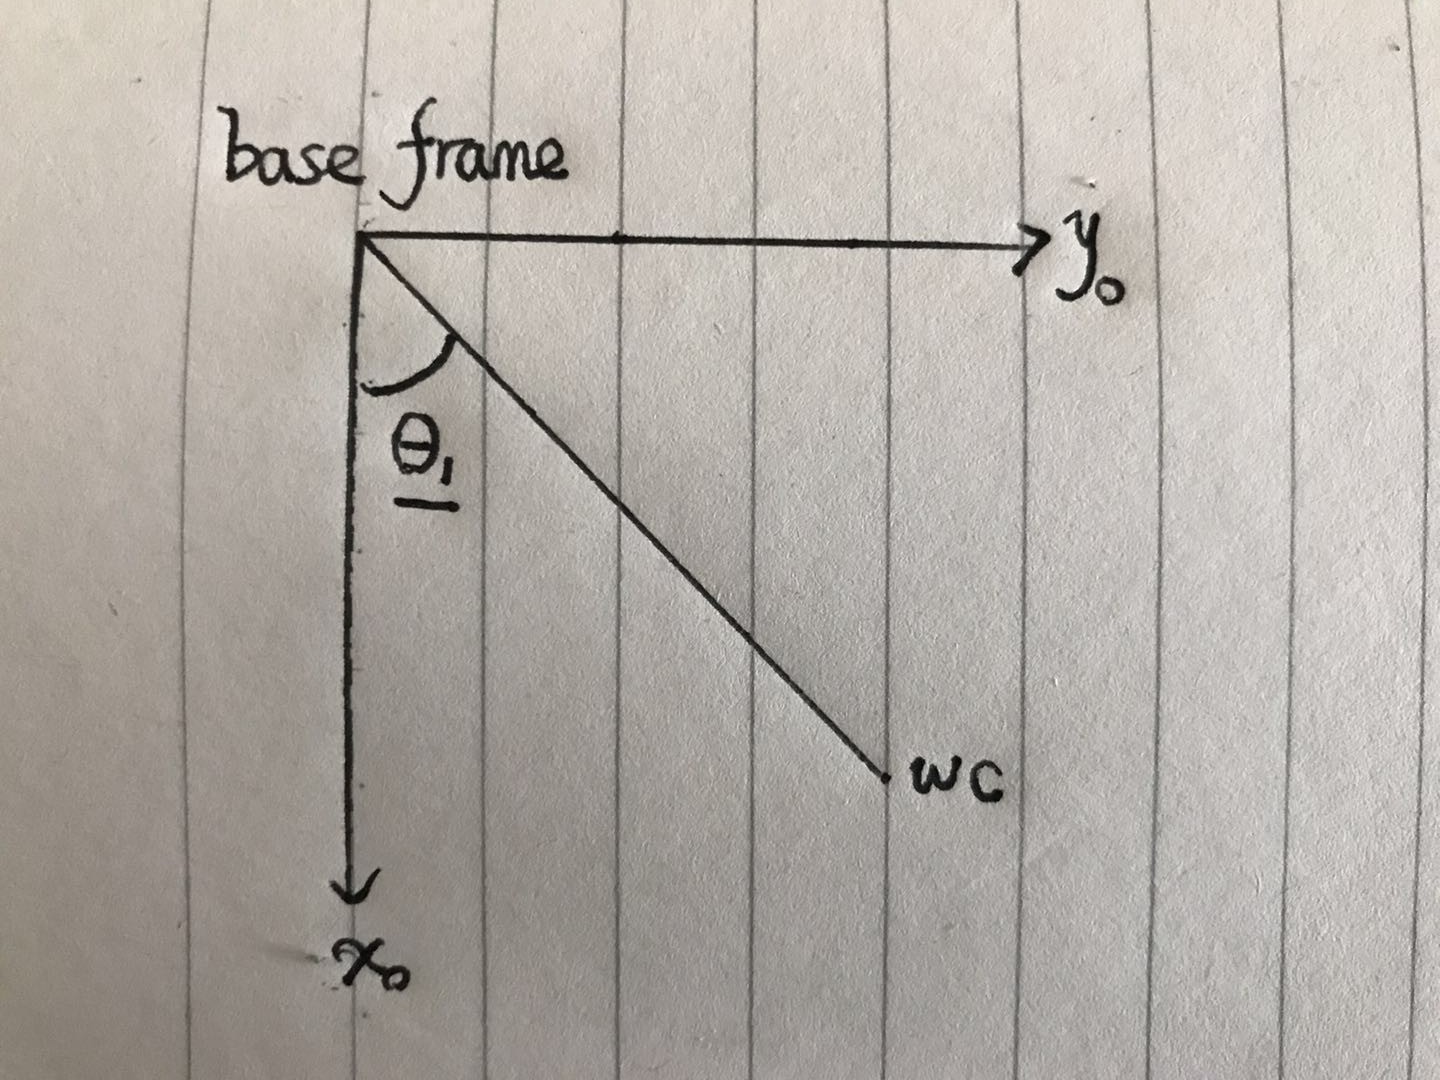 base frame
y₀
θ₁
wc
x₀